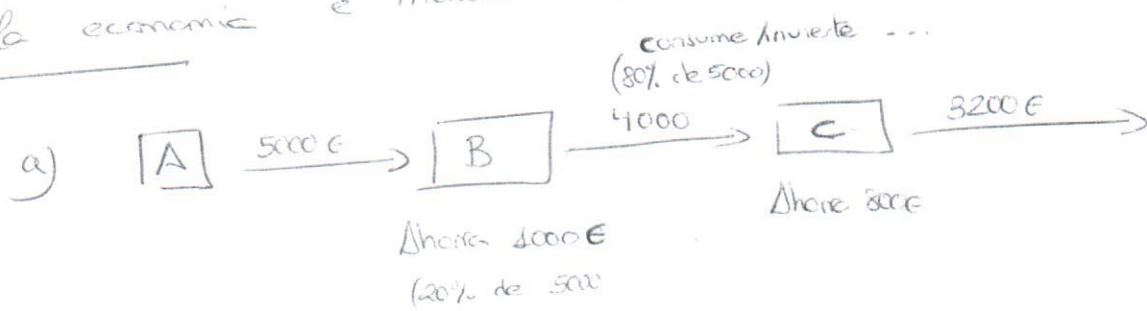 la economic e
consume /invierte ...
(80% de 5000)
a) A 5000 € B 4000 C 3200 €
Ahorra 1000 €
Ahorra 800€
(20% de 5000